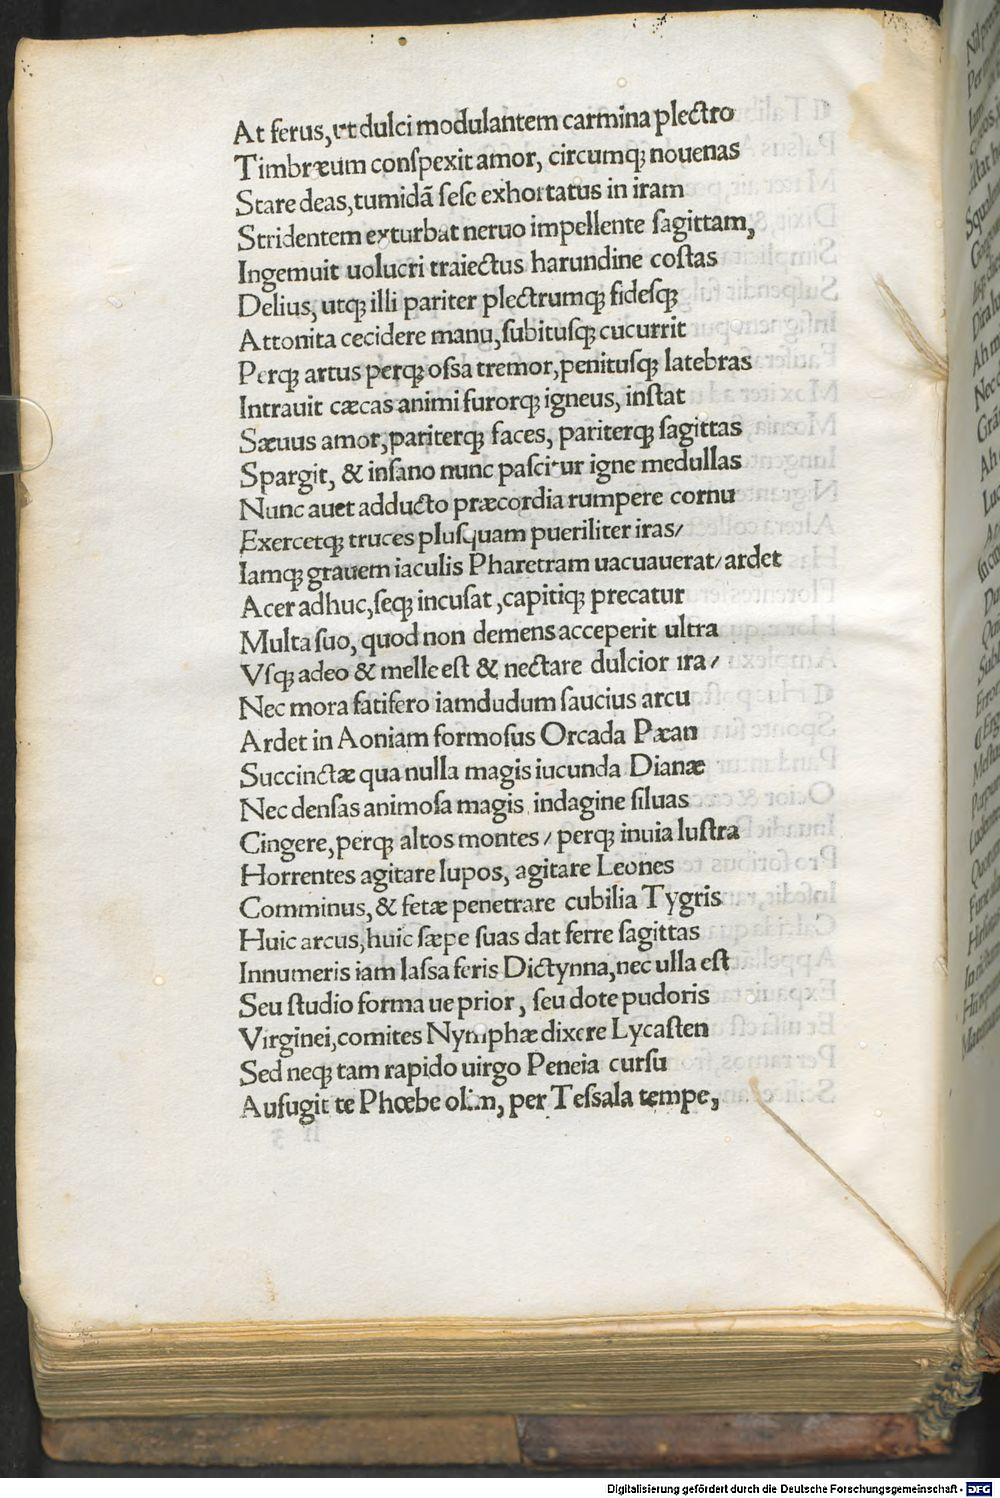 At ferus, ut dulci modulantem carmina plectro
Timbræum conſpexit amor, circumqꝫ nouenas
Stare deas, tumidã ſeſe exhortatus in iram
Stridentem exturbat neruo impellente ſagittam,
Ingemuit uolucri traiectus harundine coſtas
Delius, utqꝫ illi pariter plectrumqꝫ fideſqꝫ
Attonita cecidere manu, ſubituſqꝫ cucurrit
Perqꝫ artus perqꝫ oſſa tremor, penituſqꝫ latebras
Intrauit cæcas animi furorqꝫ igneus, inſtat
Sæuus amor, pariterqꝫ faces, pariterqꝫ ſagittas
Spargit, & inſano nunc paſcitur igne medullas
Nunc auet adducto præcordia rumpere cornu
Exercetqꝫ truces pluſquam pueriliter iras/
Iamqꝫ grauem iaculis Pharetram uacuauerat/ ardet
Acer adhuc, ſeqꝫ incuſat, capitiqꝫ precatur
Multa ſuo, quod non demens acceperit ultra
Vſqꝫ adeo & melle eſt & nectare dulcior ira/
Nec mora fatifero iamdudum ſaucius arcu
Ardet in Aoniam formoſus Orcada Pæan
Succinctæ qua nulla magis iucunda Dianæ
Nec denſas animoſa magis indagine ſiluas
Cingere, perqꝫ altos montes / perqꝫ inuia luſtra
Horrentes agitare lupos, agitare Leones
Comminus, & fetæ penetrare cubilia Tygris
Huic arcus, huic ſæpe ſuas dat ferre ſagittas
Innumeris iam laſſa feris Dictynna, nec ulla eſt
Seu ſtudio forma ue prior, ſeu dote pudoris
Virginei, comites Nymphæ dixere Lycaſten
Sed neqꝫ tam rapido uirgo Peneia curſu
Aufugit te Phœbe olim, per Teſſala tempe,
Digitalisierung gefördert durch die Deutsche Forschungsgemeinschaft - DFG